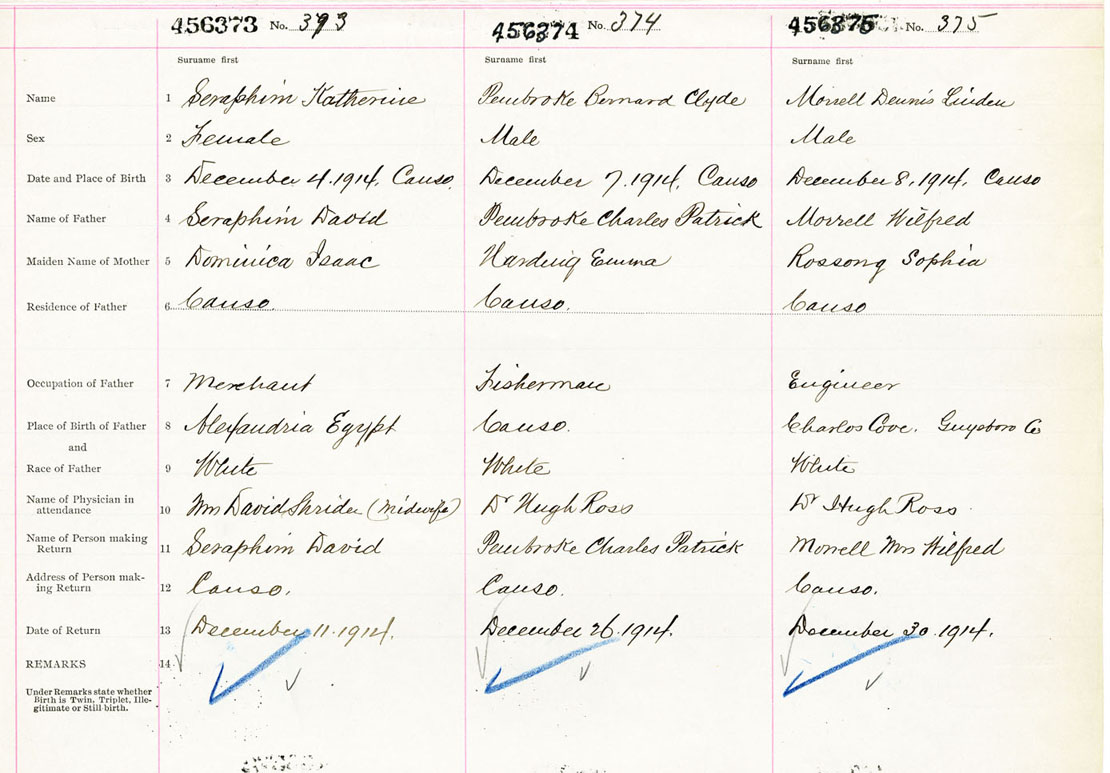 456373 No. 393 456374 No. 374 456375 No. 375
Surname first Surname first Surname first
Name 1 Seraphim Katherine Pembroke Bernard Clyde Morrell Dennis Linden
Sex 2 Female Male Male
Date and Place of Birth 3 December 4. 1914, Canso. December 7. 1914, Canso December 8, 1914, Canso
Name of Father 4 Seraphim David Pembroke Charles Patrick Morrell Wilfred
Maiden Name of Mother 5 Dominica Isaac Emma Rossong Sophia
Residence of Father 6 Canso. Canso. Canso
Occupation of Father 7 Merchant Fisherman Engineer
Place of Birth of Father 8 Alexandria Egypt Canso. Charlos Cove. Guysboro Co
and
Race of Father 9 White White White
Name of Physician in
attendance 10 Mrs David Shrider (Midwife) Dr Hugh Ross Dr Hugh Ross
Name of Person making
Return 11 Seraphim David Pembroke Charles Patrick Morrell Mrs Wilfred
Address of Person mak-
ing Return 12 Canso. Canso. Canso.
Date of Return 13 December 11. 1914. December 26. 1914. December 30. 1914.
REMARKS 14
Under Remarks state whether
Birth is Twin, Triplet, Ille-
gitimate or Still-birth.